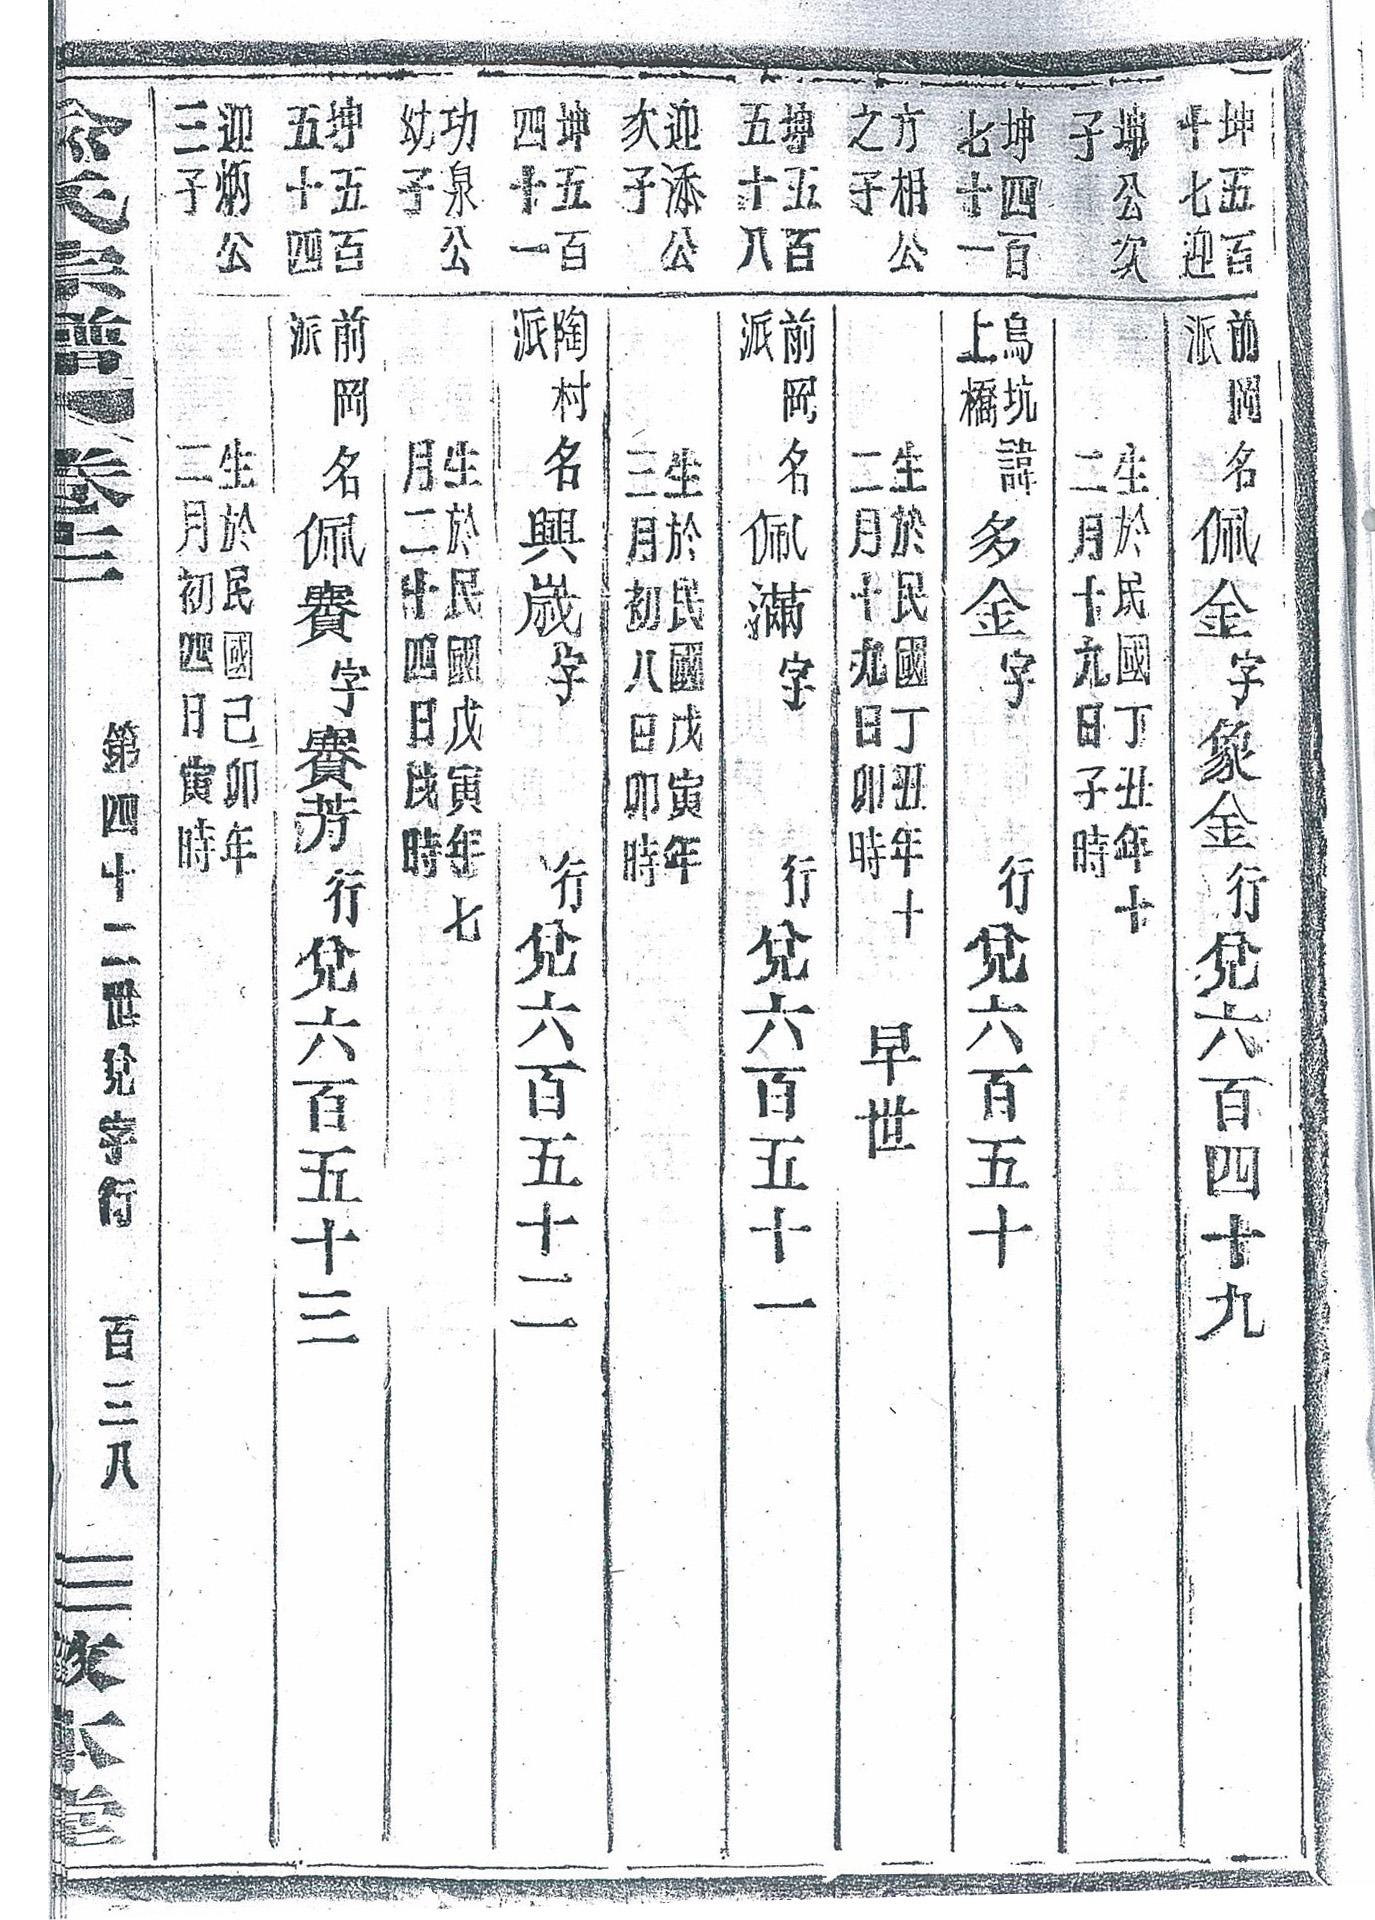 坤五百
十七迎
前岡
派
名佩金字象金行兌六百四十九
坤公次
子
生於民國丁丑年十
二月十九日子時
坤四百
七十一
烏坑
上橋
諱多金字 行兌六百五十
方相公
之子
生於民國丁丑年十
二月十九日卯時
早世
坤五百
五十八
前岡
派
名佩滿字 行兌六百五十一
迎添公
次子
生於民國戊寅年
三月初八日卯時
坤五百
四十一
陶村
派
名興嵗字 行兌六百五十二
功泉公
幼子
生於民國戊寅年七
月二十四日戌時
坤五百
五十四
前岡
派
名佩賽字賽芳行兌六百五十三
迎炳公
三子
生於民國己卯年
二月初四日寅時
俞氏宗譜 卷三
第四十二世兌字行 百三八
敦本堂